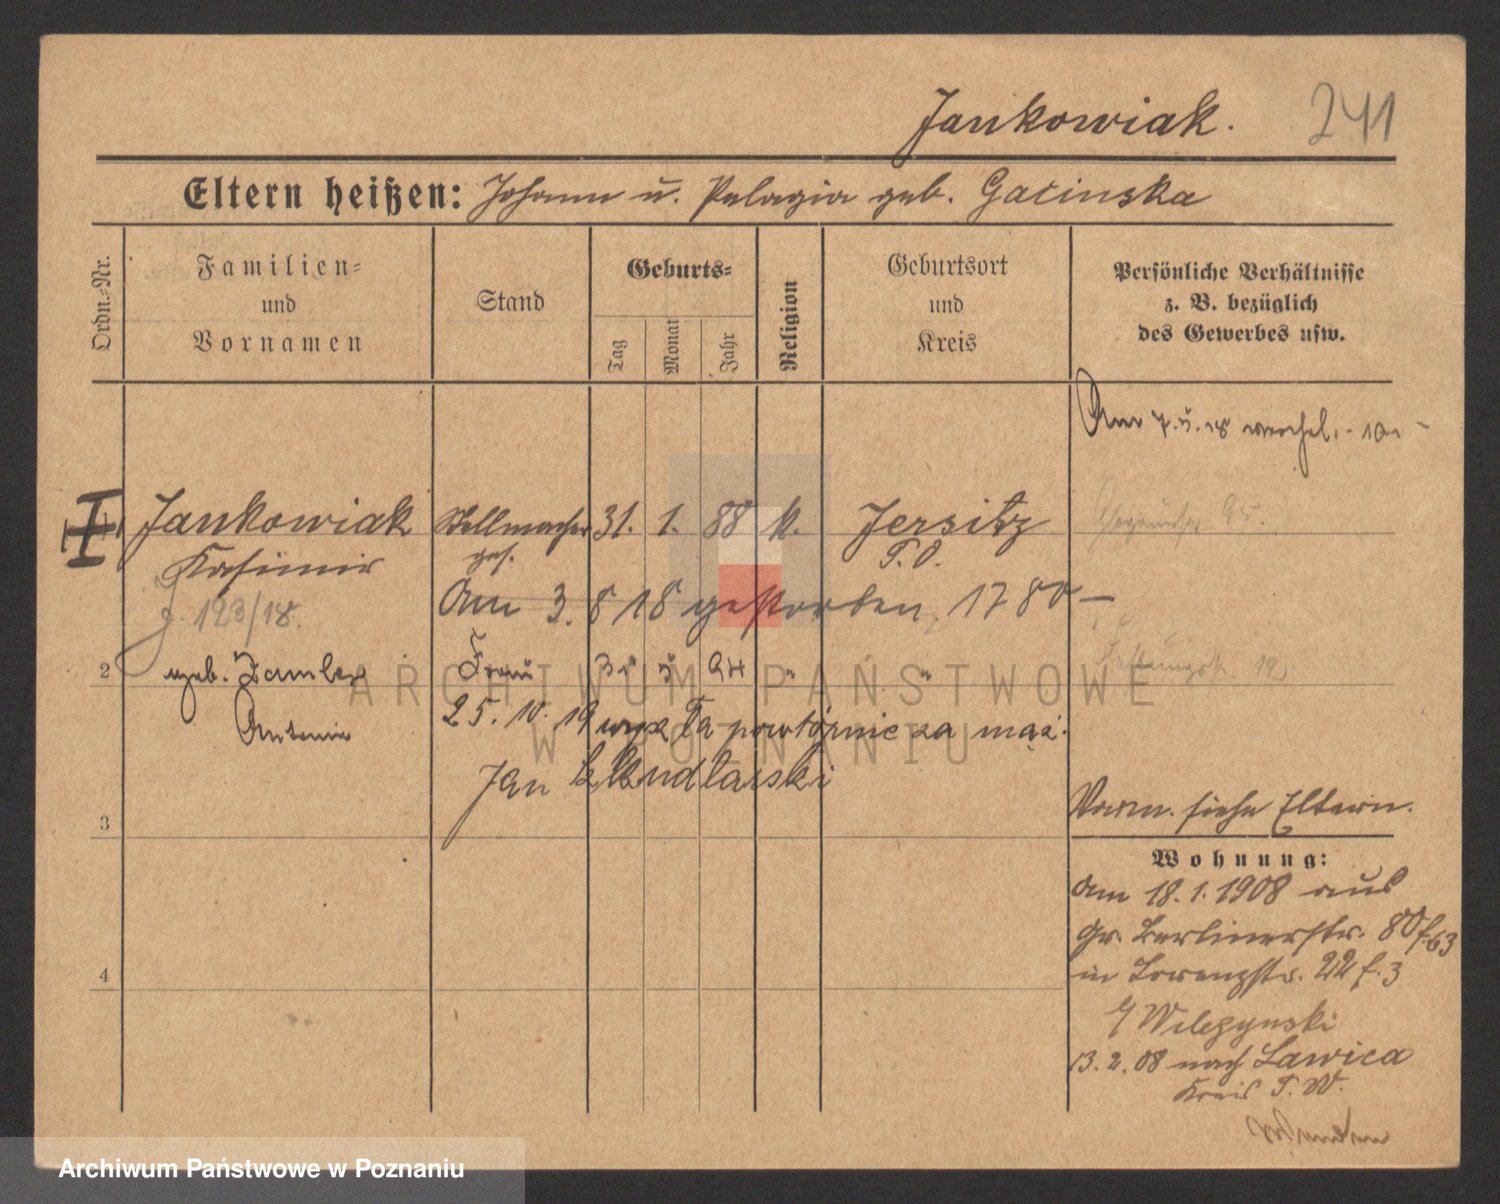 Jankowiak. 241
Eltern heißen: Johann u. Pelagia geb. Gacinska
Ordn.-Nr.
Familien-
und
Vornamen
Stand
Geburts-
Tag
Monat
Jahr
Religion
Geburtsort
und
Kreis
Persönliche Verhältnisse
z. B. bezüglich
des Gewerbes usw.
Am
Jankowiak Stellmacher 31. 1. 88 k. Jersitz
Kasimir ges. P. O.
J. 123/18. Am 3. 8 18 gestorben, 1780
2 geb. Frau 94 " "
Antonie 25. 10. 19 wyszła powtórnie za mąż.
Jan
Vorm. siehe Eltern.
3
Wohnung:
am 18. 1. 1908 aus
Gr. Berlinerstr. 80 f. 63
in Lorenzstr. 22 f. 3
Wilczynski
13. 2. 08 nach Lawica
Kreis P. W.
4
ARCHIWUM PAŃSTWOWE
W POZNANIU
Archiwum Państwowe w Poznaniu